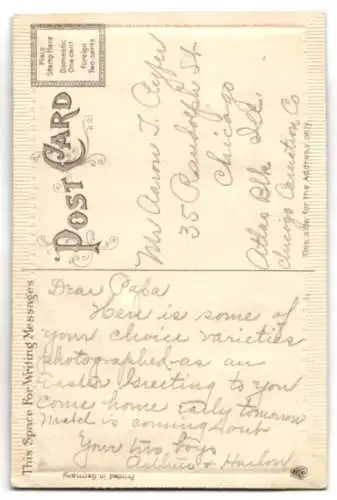 Place
Stamp Here
Domestic
One cent
Foreign
Two cents
POST CARD
Mr Aaron T. Pyfer
35 Randolph St
Chicago
Atlas Blk Ill.
Chicago Carnation Co
This side for the Address only.
This Space For Writing Messages
Dear Papa
Here is some of
your choice varieties
photographed as an
Easter Greeting to you
Come home early tomorrow
is coming out
Your two boys
& Harlow
Printed in Germany